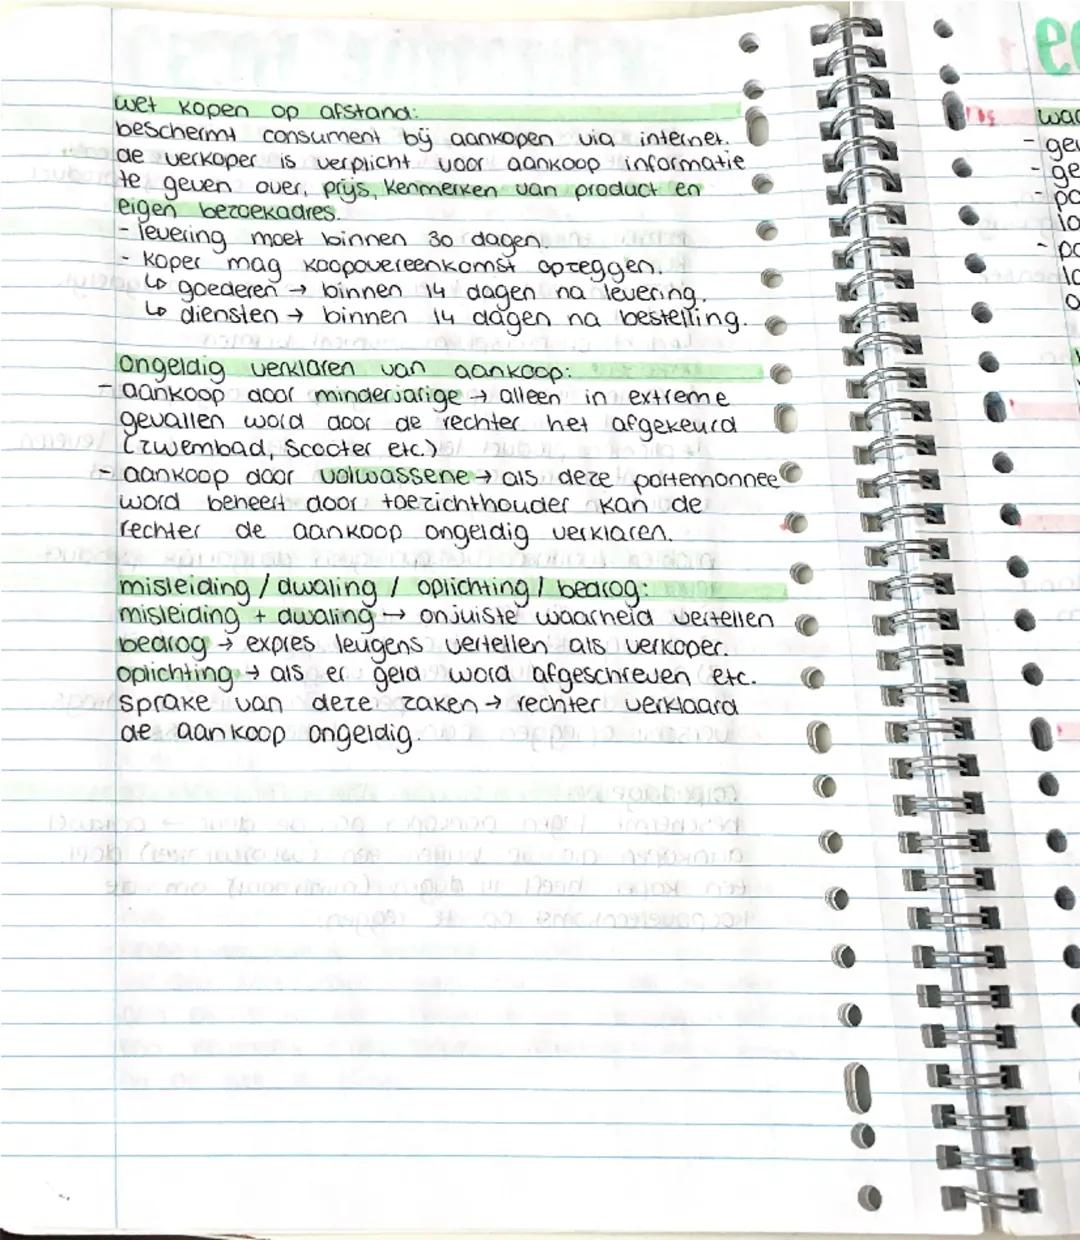 wet kopen op afstand:
beschermt consument bij aankopen via internet.
de verkoper is verplicht voor aankoop informatie
te geven over, prijs, kenmerken van product en
eigen bezoekadres.
- levering moet binnen 30 dagen.
- koper mag koopovereenkomst opzeggen.
↳ goederen → binnen 14 dagen na levering.
↳ diensten → binnen 14 dagen na bestelling.
ongeldig verklaren van aankoop:
- aankoop door minderjarige → alleen in extreme
gevallen word door de rechter het afgekeurd
(zwembad, scooter etc.)
- aankoop door volwassene → als deze portemonnee
word beheert door toezichthouder kan de
rechter de aankoop ongeldig verklaren.
misleiding / dwaling / oplichting / bedrog:
misleiding + dwaling → onjuiste waarheid vertellen
bedrog → expres leugens vertellen als verkoper.
oplichting → als er geld word afgeschreven etc.
sprake van deze zaken → rechter verklaard
de aankoop ongeldig.